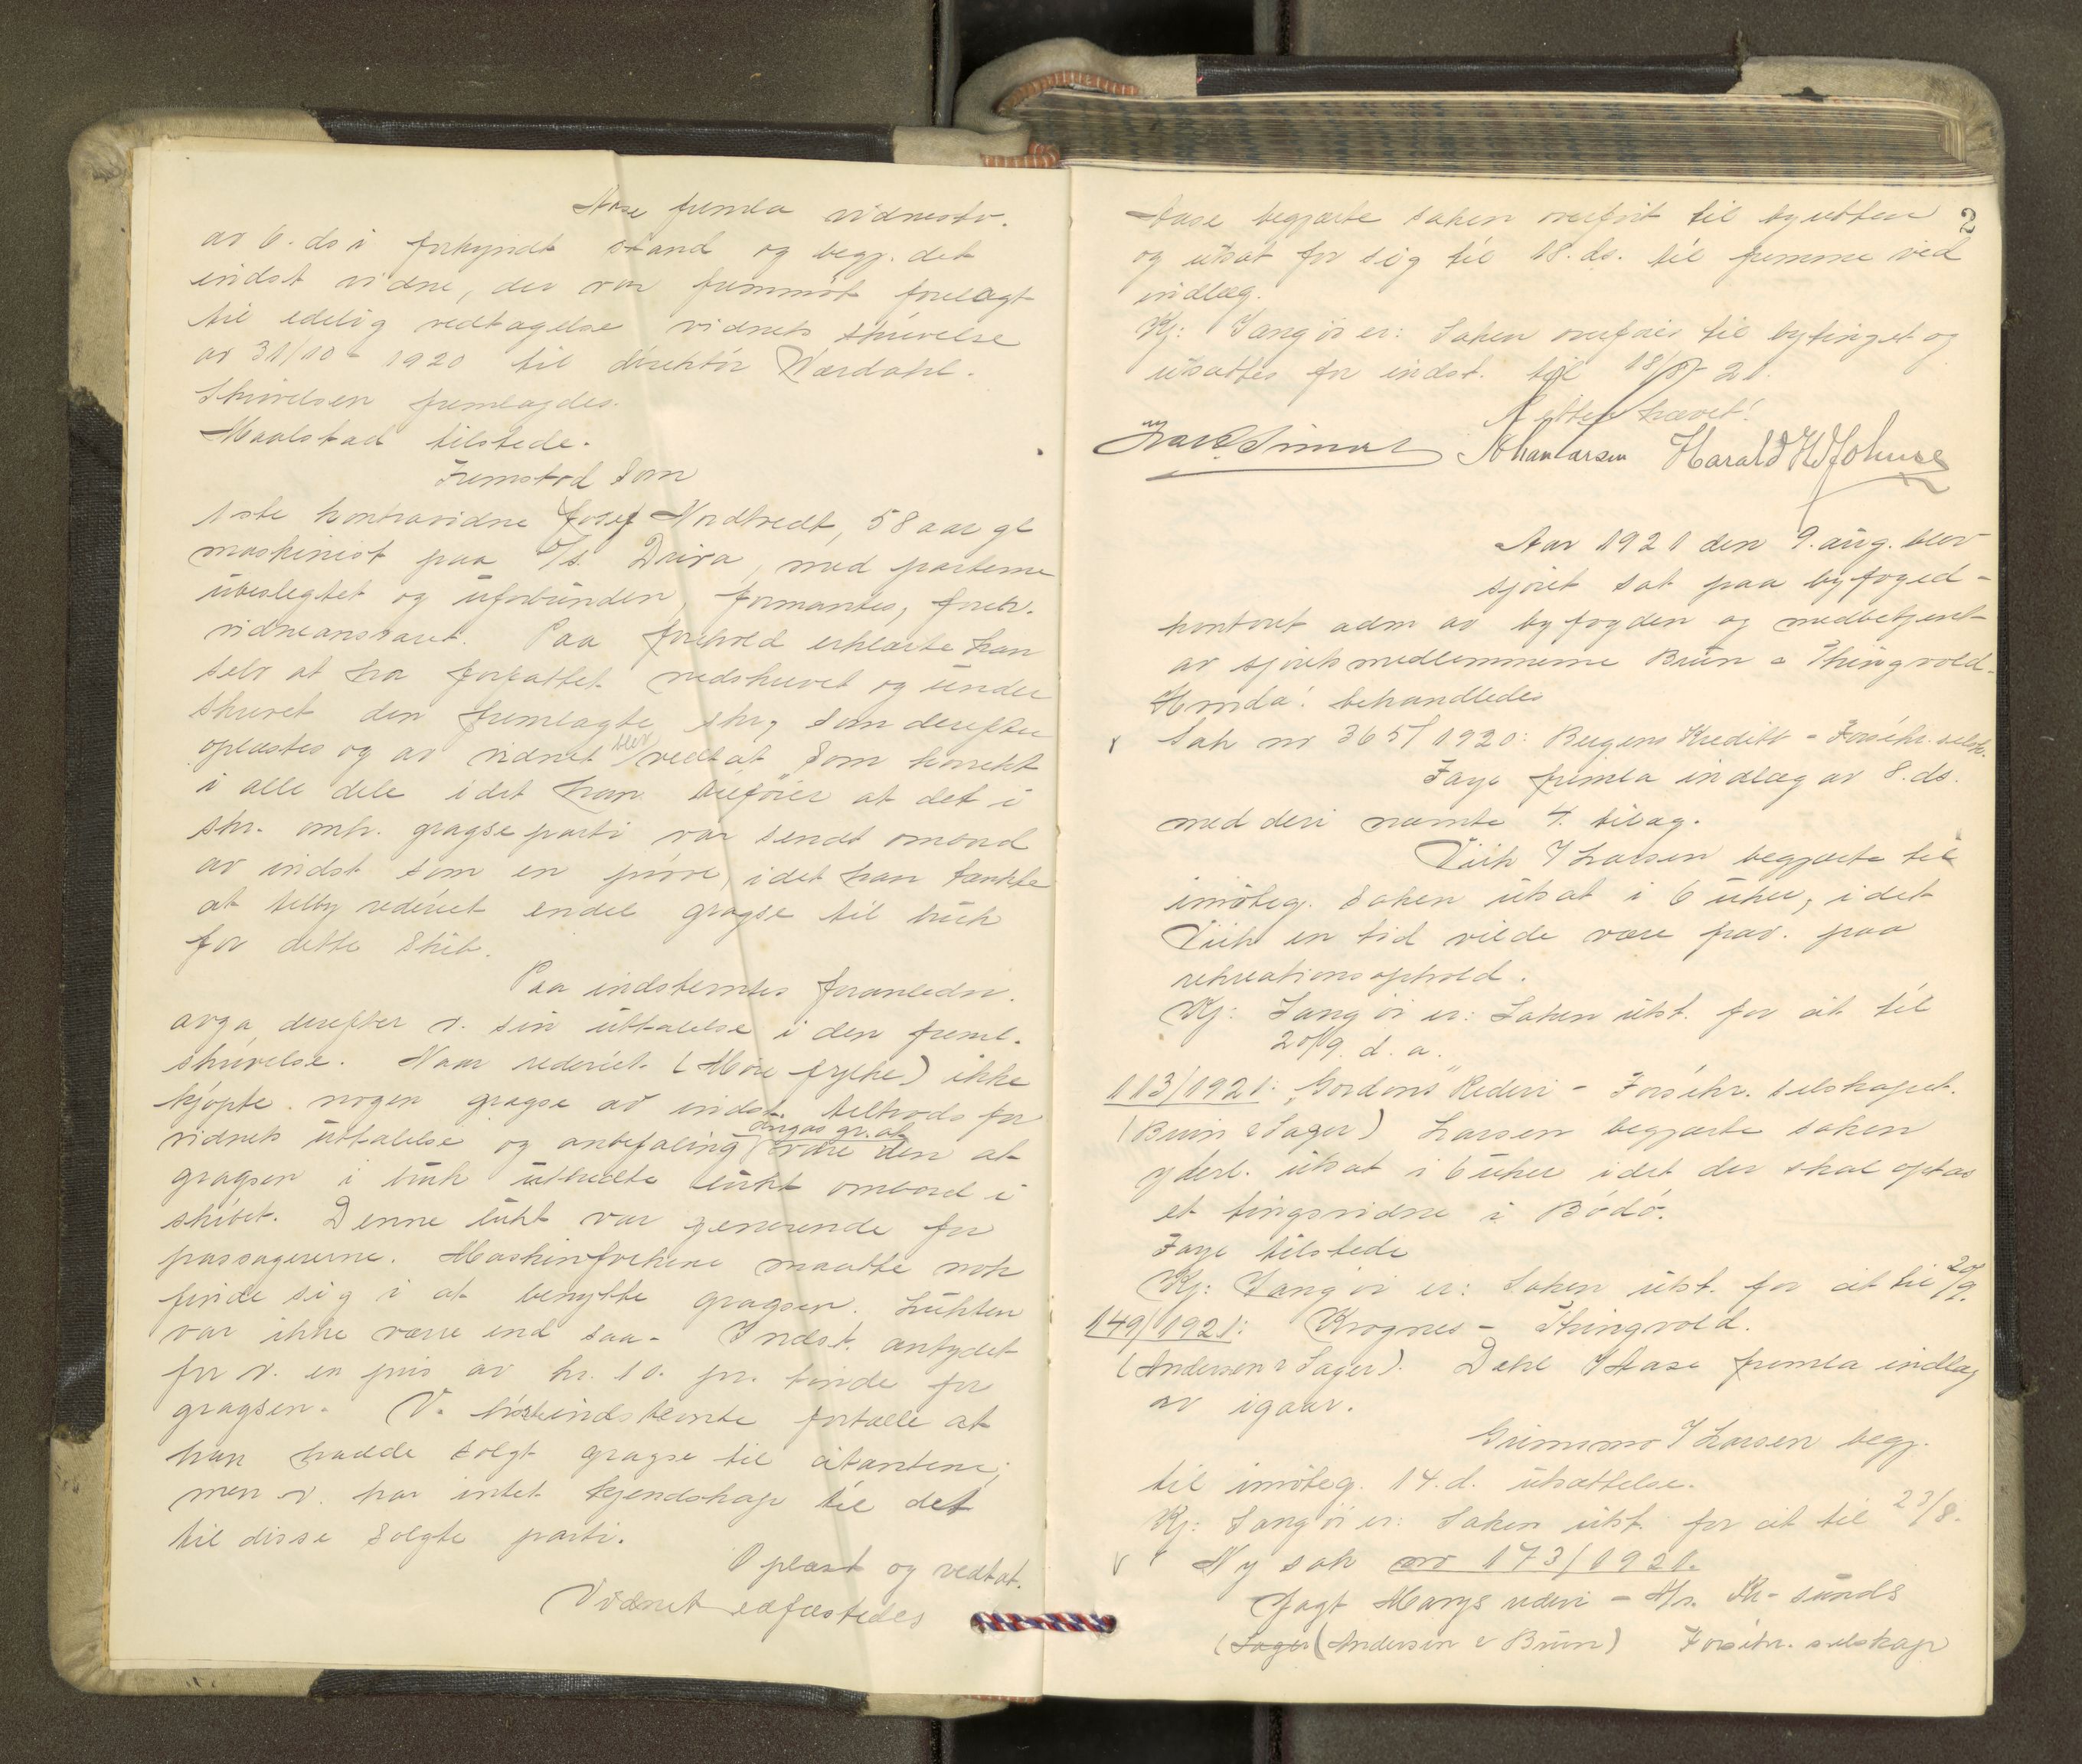 Aase fremla vidnestv.
av 6. ds i forkyndt stand og begj. det
endst vidne, der var fremmøt forelagt
til edelig vedtagelse vidnets skrivelse
av 31/10 - 1920 til direktør Værdahl.
Skrivelsen fremlagdes.
Maalstad tilstede.
Fremstod som
1ste kontravidne Josef Nordtvedt, 58 aar gl
maskinist paa D/s. Driva, med parterne
ubeslegtet og uforbunden, formantes, foreh.
vidneansvaret. Paa forehold erklærte han
selv at ha forfattet nedskrevet og under
skrevet den fremlagte skr, som derefter
oplæstes og av vidnet blev vedtat som korrekt
i alle dele idet han tilføier at det i
skr. omh. gragseparti var sendt ombord
av indst som en prøve, idet han tænkte
at tilby rederiet endel gragse til bruk
for dette skib.
Paa indstevntes foranledn.
avga derefter v. sin uttalelse i den freml.
skrivelse. Naar rederiet (Møre fylke) ikke
kjøpte nogen gragse av indst. tiltrods for
vidnets uttalelse og anbefaling
gragsen i bruk utbredte lukt ombord i
skibet. Denne lukt var generende for
passagererne. Maskinfolkene maatte nok
finde sig i at benytte gragsen. Lukten
var ikke værre end saa - Indst. antydet
for v. en pris av kr. 10. pr. tønde for
gragsen. V. hørte indstevnte fortælle at
han hadde solgt gragse til citantene;
men v. har intet kjendskap til det
til disse solgte parti.
Oplæst og vedtat.
Vidnet edfæstedes
2
Aase begjærte saken overført til byretten
og utsat for sig til 18. ds. til fremme ved
indlæg.
Kj: Sangöi er: Saken overføies til bytinget og
utsættes for indst. til 18/8 - 21.
Retten hævet!
Johan Larsen Harald H Johnsen
Aar 1921 den 9. aug. blev
sjöret sat paa byfoged-
kontoret adm av byfogden og medbetjent
av sjöretsmedlemmerne Bruun & Thingvold.
Hvorda! behandledes
Sak nr 365/1920: Bergens Kreditb - Forsikr. selsk.
Faye fremla indlæg av 8. ds.
med deri nævnte 4. bilag.
Viik / Larsen begjærte til
imøteg. saken utsat i 6 uker, idet
Viik en tid vilde være frav. paa
rekreationsophold.
Kj: Sangöi er: Saken utst. for cit til
20/9. d. a.
113/1921: "Gordons" Rederi - Forsikr. selskapet.
(Bruun & Sager) Larsen begjærte saken
yderl. utsat i 6 uker idet der skal optas
et tingsvidne i Bödö.
Faye tilstede
Kj: Sangöi er: Saken utst. for cit til 20/9.
149/1921: Krognes - Thingvold.
(Andersen & Sager). Dahl / Aase fremla indlæg
av igaar.
Grimsmo / Larsen begj.
til imøteg. 14. d. utsættelse.
Kj: Sangöi er: Saken utst. for cit til 23/8.
Ny sak nr 173/1921.
Jagt Marys rederi - A/s. Kr-sunds
(Sager (Andersen & Bruun) Forsikr. selskap